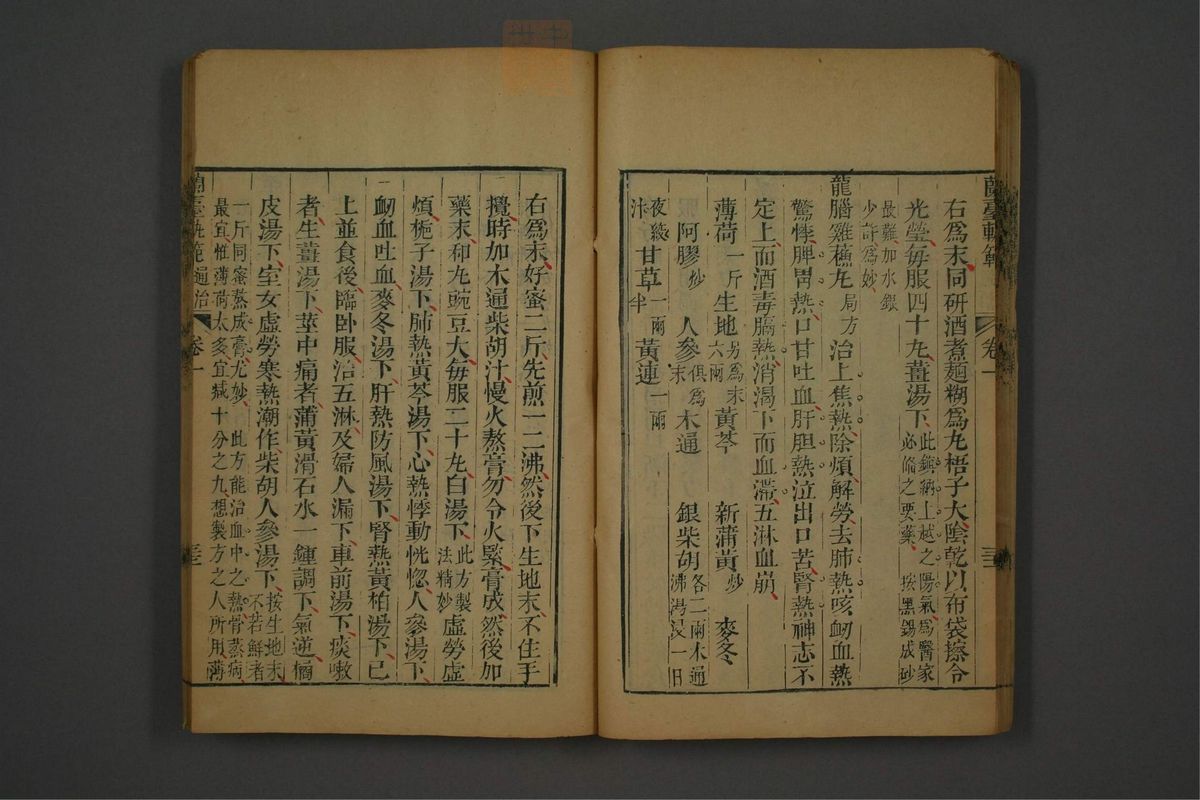 蘭臺軌範 卷一 三三
右爲末同研酒煮麵糊爲丸梧子大陰乾以布袋擦令
光瑩每服四十丸薑湯下此鎮納上越之陽氣爲醫家必備之要藥 按黑錫成砂
最難加水銀少許爲妙
龍腦雞蘇丸 局方 治上焦熱除煩解勞去肺熱咳衂血熱
驚悸脾胃熱口甘吐血肝胆熱泣出口苦腎熱神志不
定上而酒毒膈熱消渴下而血滯五淋血崩
薄荷一斤 生地六兩另爲末 黃芩 新蒲黃炒 麥冬
阿膠炒 人參俱爲末 木通 銀柴胡各二兩木通沸湯浸一日
夜絞汁 甘草一兩半 黃連一兩
右爲末好蜜二斤先煎一二沸然後下生地末不住手
攪時加木通柴胡汁慢火熬膏勿令火緊膏成然後加
藥末和丸豌豆大每服二十丸白湯下此方製法精妙虛勞虛
煩梔子湯下肺熱黃芩湯下心熱悸動恍惚人參湯下
衂血吐血麥冬湯下肝熱防風湯下腎熱黃柏湯下已
上並食後臨卧服治五淋及婦人漏下車前湯下痰嗽
者生薑湯下莖中痛者蒲黃滑石水一鍾調下氣逆橘
皮湯下室女虛勞寒熱潮作柴胡人參湯下按生地末不若鮮者
一斤同蜜熬成膏尤妙 此方能治血中之熱骨蒸病
最宜惟薄荷太多宜減十分之九想製方之人所用薄
蘭臺軌範 通治 卷一 三三